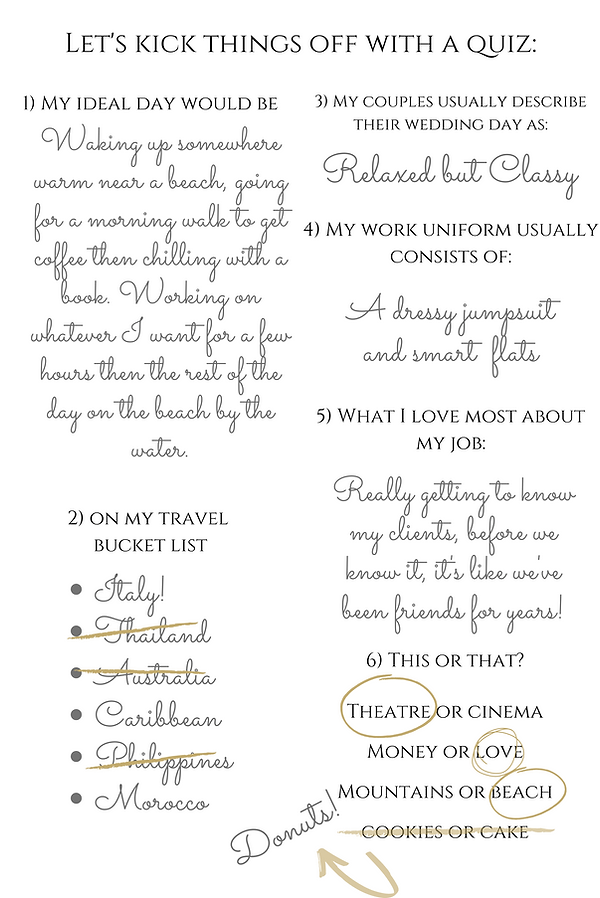 Let's kick things off with a quiz:
1) My ideal day would be
Waking up somewhere
warm near a beach, going
for a morning walk to get
coffee then chilling with a
book. Working on
whatever I want for a few
hours then the rest of the
day on the beach by the
water.
2) on my travel
bucket list
Italy!
Thailand
Australia
Caribbean
Philippines
Morocco
3) My couples usually describe
their wedding day as:
Relaxed but Classy
4) My work uniform usually
consists of:
A dressy jumpsuit
and smart flats
5) What I love most about
my job:
Really getting to know
my clients, before we
know it, it's like we've
been friends for years!
6) This or that?
Theatre or cinema
Money or love
Mountains or beach
cookies or cake
Donuts!